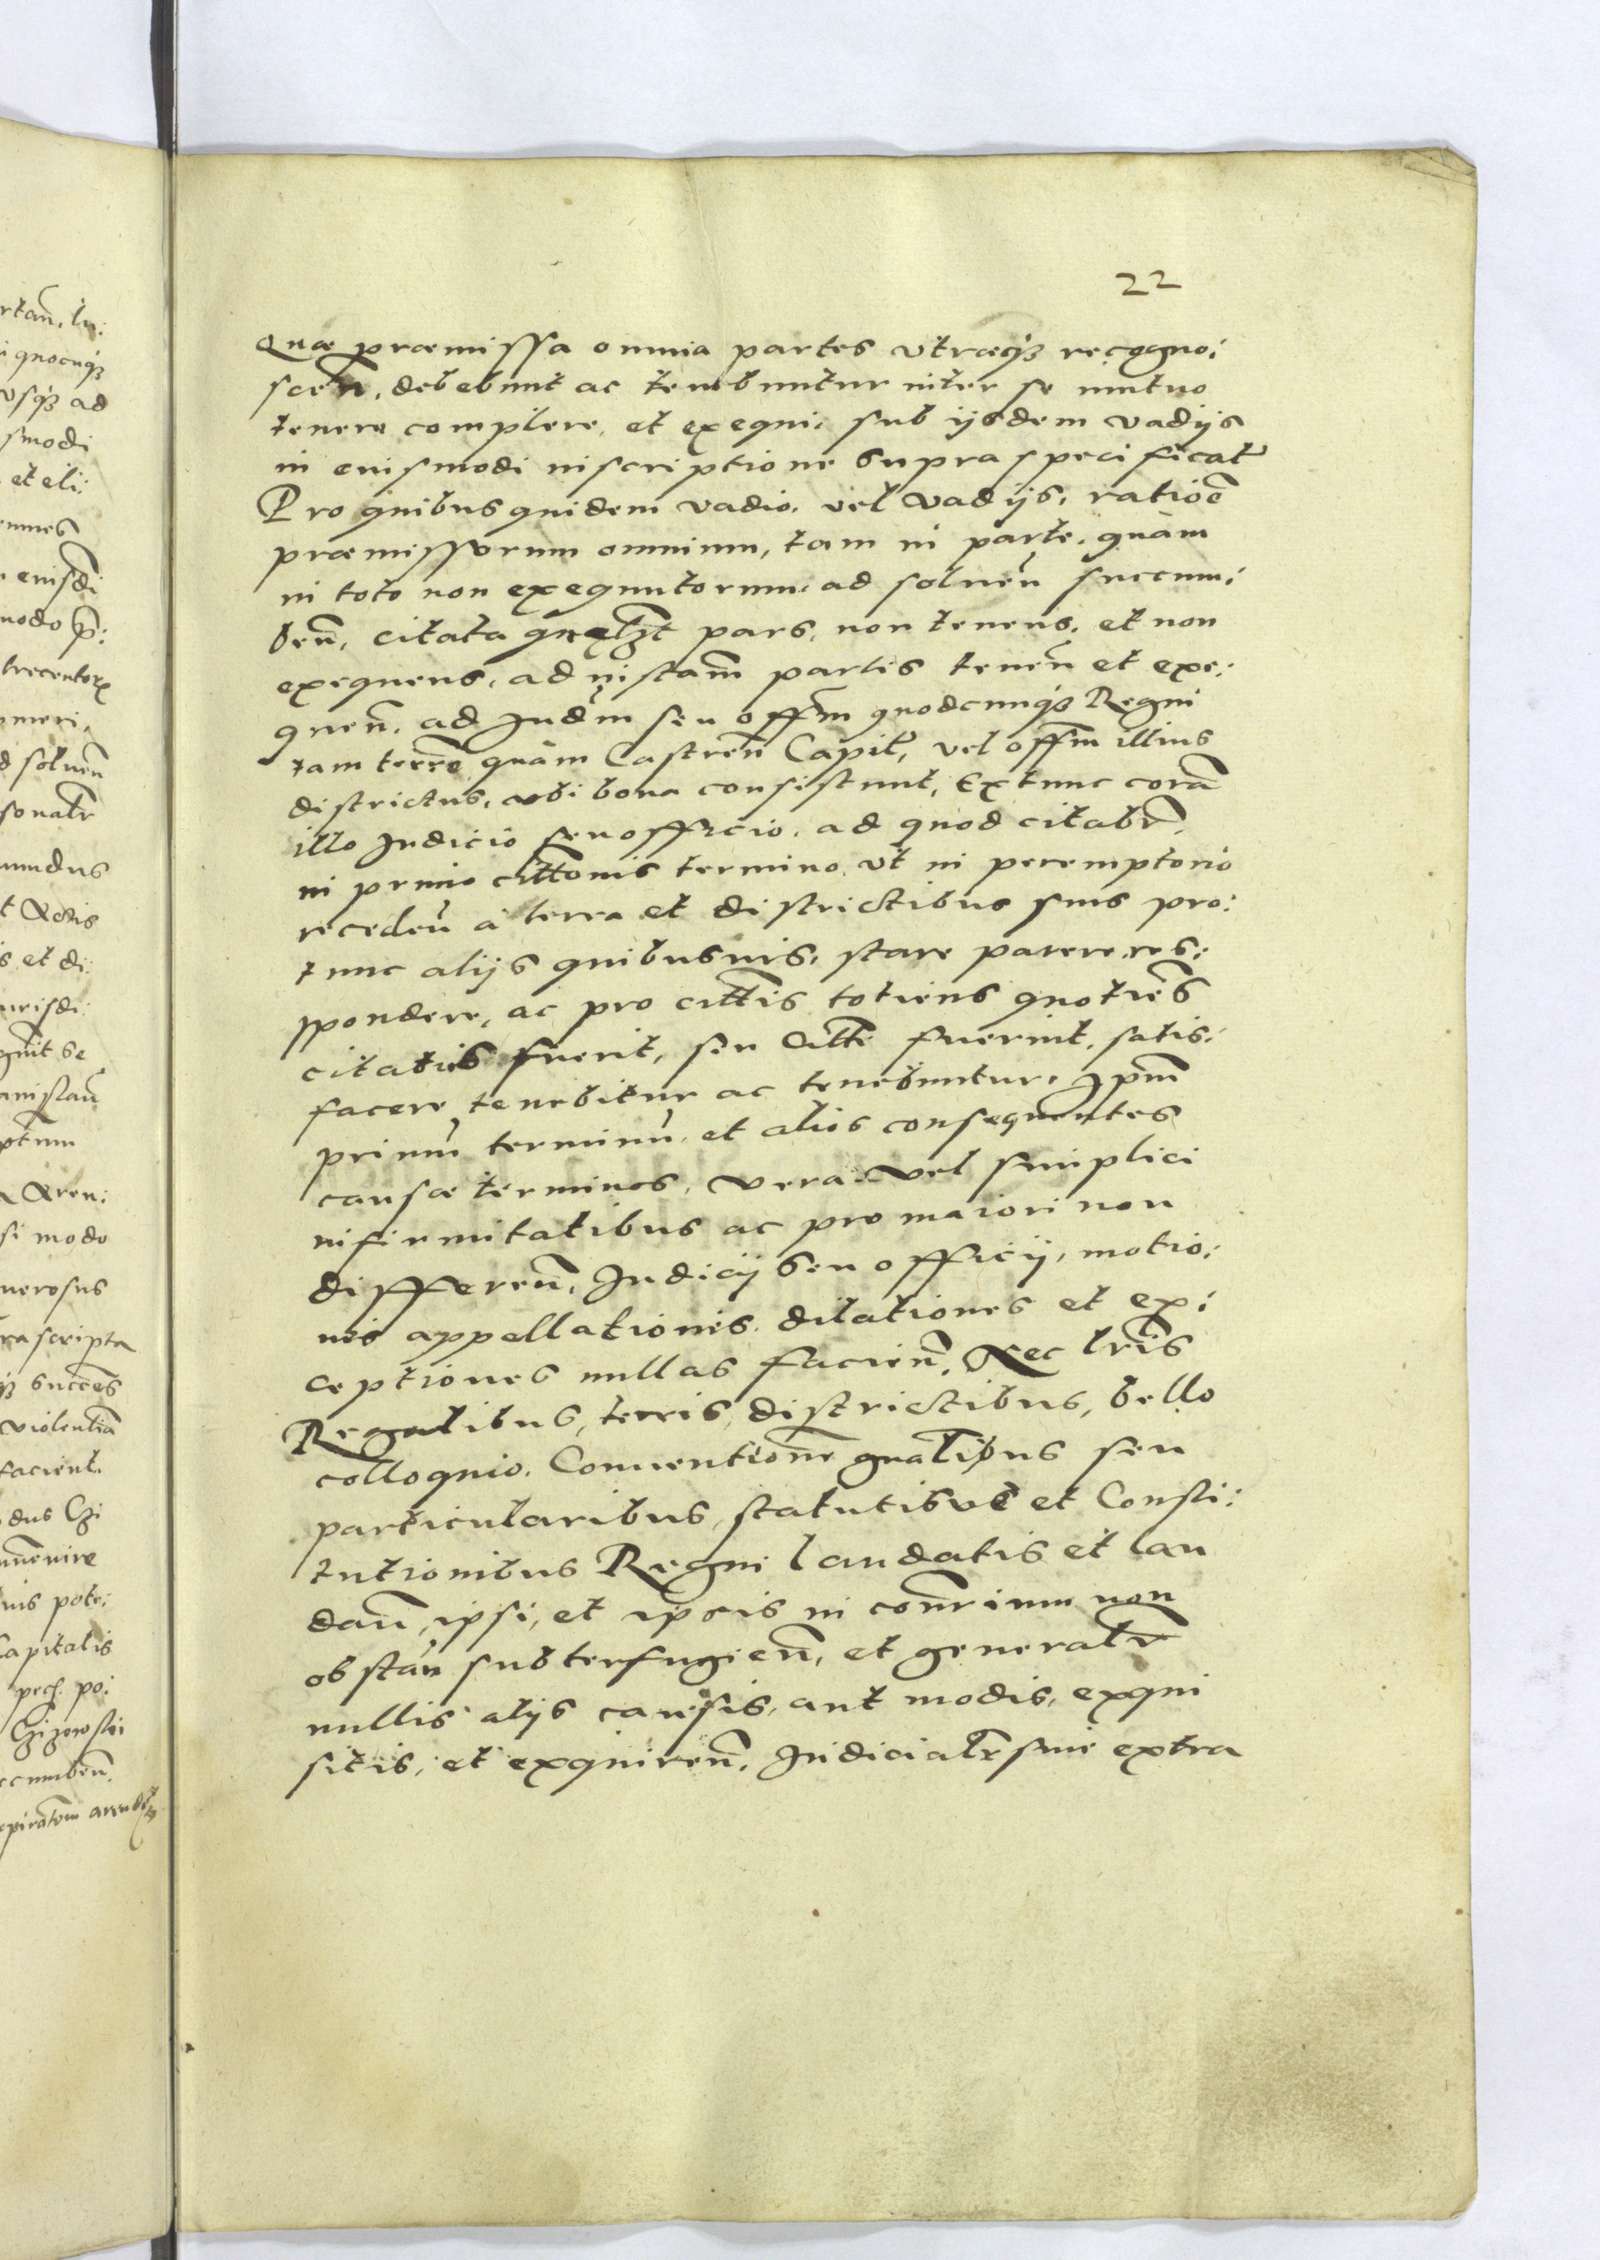 22
Quæ præmissa omnia partes vtræqȝ recogno:
sceñ, debebunt ac tenebuntur inter se mutuo
tenere complere, et exequi, sub ijsdem vadijs
in eiusmodi inscriptione supra specificat̃
Pro quibus quidem vadio, vel vadijs, ratiõe
præmissorum omnium, tam in parte, quàm
in toto non exequutorum, ad soluen̄ succum:
beñ, citata pars, non tenens, et non
exequens, ad instam̃ partis teneñ et exe:
queñ, ad Iud̃m seu off̃m quodcunqȝ Regni
tam terr̃e quàm Castreñ Capit̃, vel off̃m illius
districtus, vbi bona consistunt, Extunc corã
illo Iudicio seu officio, ad quod citabr̃,
in primo citt̃onis termino, vt in peremptorio
recedeñ à terra et districtibus suis pro:
tunc alijs quibusuis, stare parere, res:
pondere, ac pro citt̃is totiens quotiẽs
citatus fuerit, seu Citt̃e fuerint, satis:
facere tenebitur ac tenebuntur, Ip̃m
primũ terminũ, et alios consequentes
causæ terminos, vera vel simplici
infirmitatibus ac pro maiori non
differeñ, Iudicij seu officij, motio:
nis appellationis, dilationes et ex:
ceptiones nullas facieñ, Nec lr̃is
Regalibus, terris, districtibus, bello
colloquio, Conuentione gñalibus seu
particularibus, statutisue et Consti:
tutionibus Regni laudatis et lau
dañ, ipsi, et ipsis in cont̃rium non
obstañ subterfugieñ, et generalr̃
nullis alijs causis, aut modis, exqui
sitis, et exquireñ, Iudicialr̃ siue extra